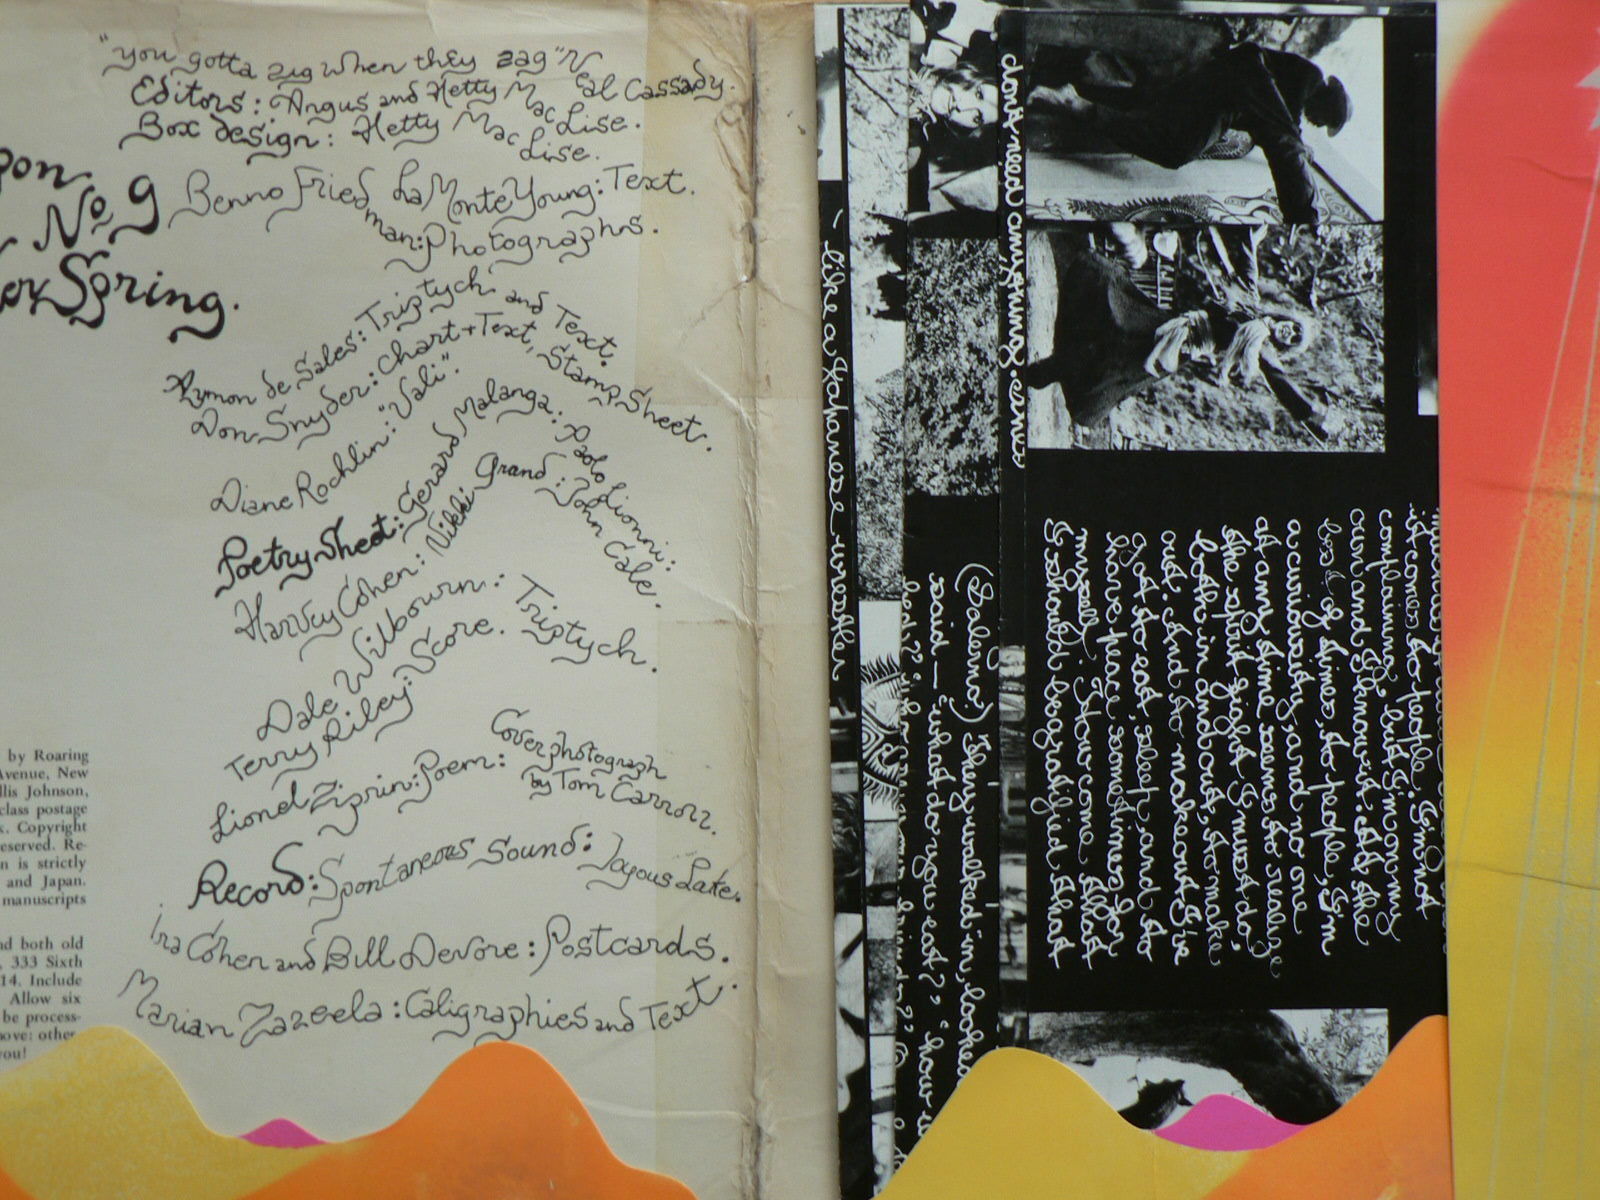 "you gotta zig when they zag" Neal Cassady.
Editors: Angus and Hetty MacLise.
Box design: Hetty MacLise.
No 9
Spring.
LaMonte Young: Text.
Benno Friedman: Photographs.
Aymon de Sales: Triptych and Text.
Don Snyder: Chart + Text, Stamp Sheet.
Diane Rochlin: "Vali".
Poetry Sheet: Gerard Malanga: Paolo Lionni:
Harvey Cohen: Nikki Grand: John Cale.
Dale Wilbourn: Triptych.
Terry Riley: Score.
Lionel Ziprin: Poem: Cover photograph
by Tom Carroll.
Record: Spontaneous Sound: Joyous Lake.
Ira Cohen and Bill Devore: Postcards.
Marian Zazeela: Caligraphies and Text.
by Roaring
Avenue, New
llis Johnson,
class postage
Copyright
eserved. Re-
n is strictly
and Japan.
manuscripts
nd both old
333 Sixth
14. Include
Allow six
be process-
ove: other-
you!
like a Japanese wrestler
(Salena) They walked in looked
said — what do you eat?, how
it comes to people. I'm not
complaining, but I'm on my
own and I know it. All the
of times, to people, I'm
a curiousity, and no one
at any time seems to realize
the spirit fight I must do,
both in and out, to make
out. And to make out I've
got to eat, sleep, and to
have peace sometimes for
myself. How come that
I should be gratified that